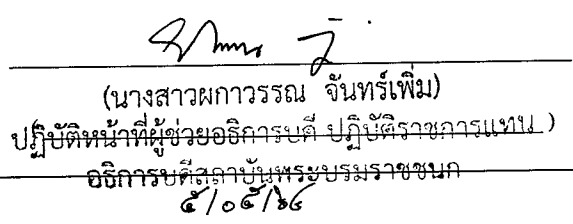 (นางสาวผกาวรรณ จันทร์เพิ่ม)
ปฏิบัติหน้าที่ผู้ช่วยอธิการบดี ปฏิบัติราชการแทน )
อธิการบดีสถาบันพระบรมราชชนก